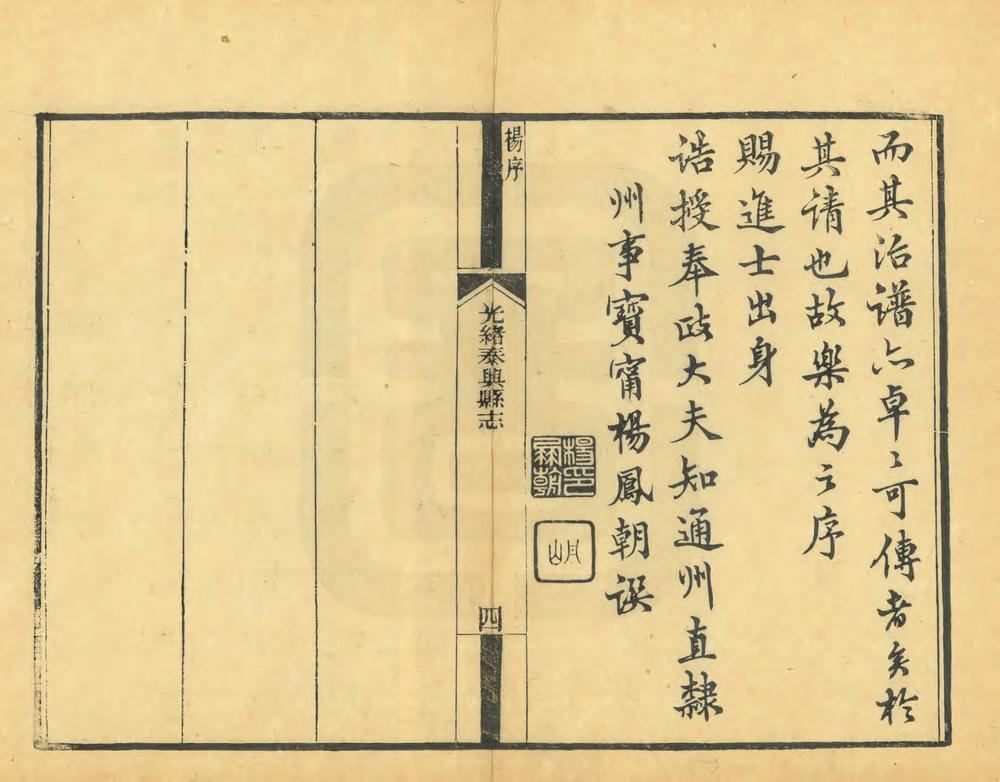 而其治譜亦卓〻可傳者矣於
其請也故樂為之序
賜進士出身
誥授奉政大夫知通州直隸
州事寶甯楊鳳朝譔
楊序
光緒泰興縣志
四